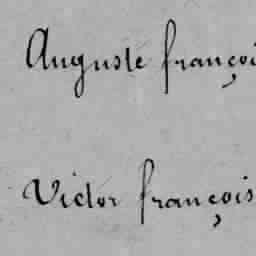 Auguste françoi
Victor françois